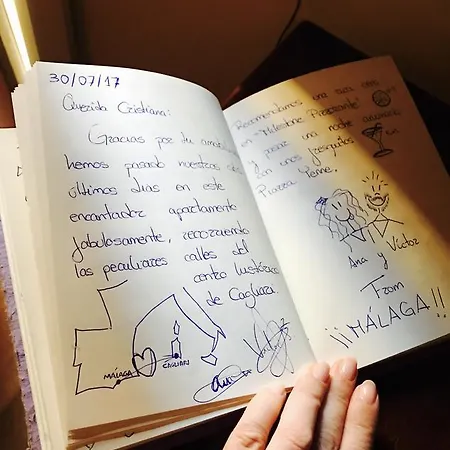 30/07/17
Querida Cristiana:
Gracias por tu
hemos pasado nuestros
últimos días en este
encantador apartamento
fabulosamente, recorriendo
las peculiares calles del
centro histórico
de Cagliari.
MÁLAGA
CAGLIARI
Recomendamos una
en
y pasar una noche
con unos fresquitos
Piazza Yenne.
Ana y Víctor
From
¡¡MÁLAGA!!